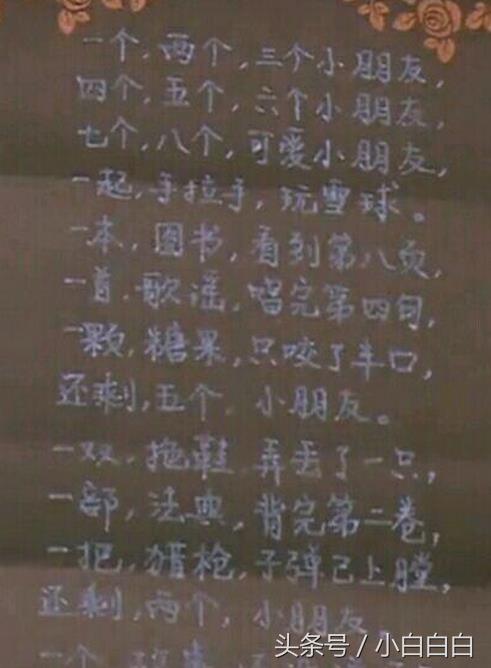 一个，两个，三个小朋友，
四个，五个，六个小朋友，
七个，八个，可爱小朋友，
一起，手拉手，玩雪球。
一本，图书，看到第八页，
一首，歌谣，唱完第四句，
一颗，糖果，只咬了半口，
还剩，五个，小朋友。
一双，拖鞋，弄丢了一只，
一部，法典，背完第二卷，
一把，猎枪，子弹已上膛，
还剩，两个，小朋友。
一个
头条号 / 小白白白